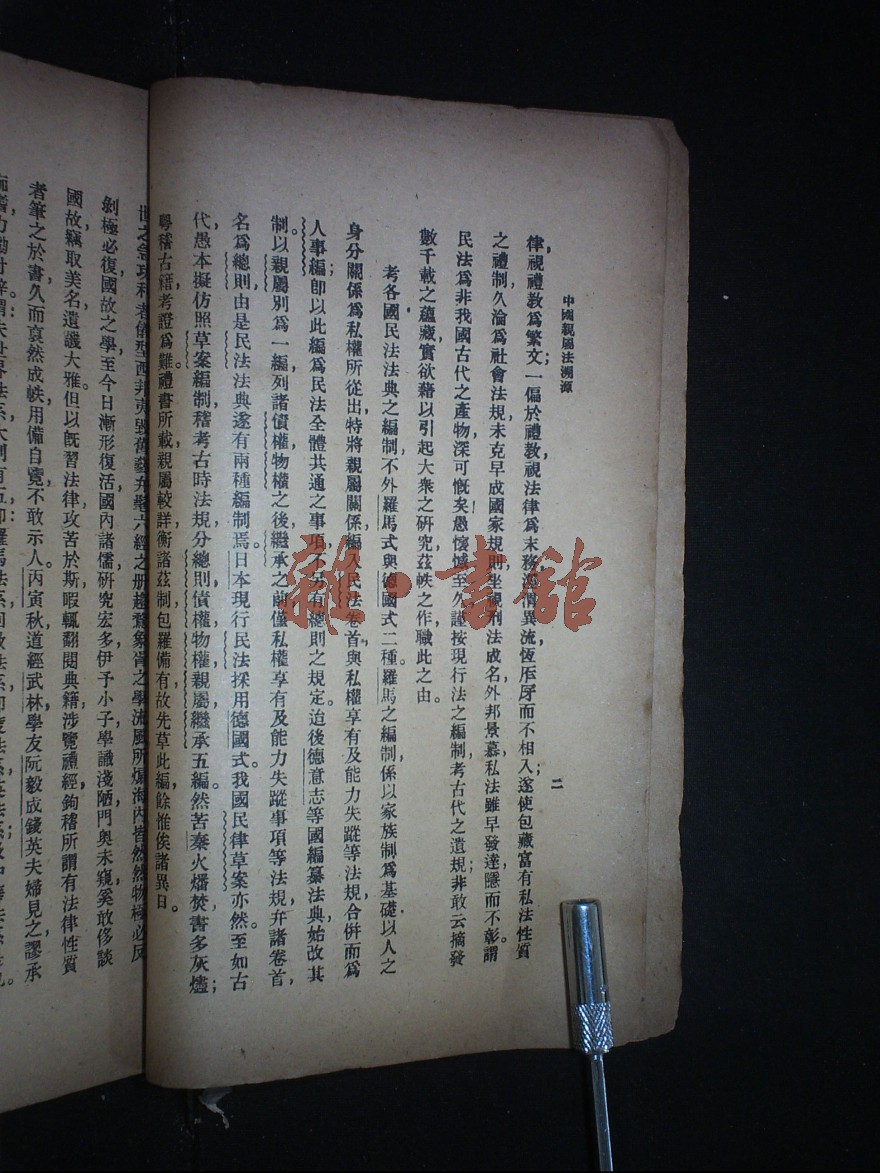 中國親屬法溯源
二
律，視禮教爲繁文；一偏於禮教，視法律爲末務。異流，恆而不相入；遂使包藏富有私法性質
之禮制，久淪爲社會法規，未克早成國家規則。坐視刑法成名，外邦景慕；私法雖早發達，隱而不彰。謂
民法爲非我國古代之產物，深可慨矣！愚懷憾至久，謹按現行法之編制，考古代之遺規；非敢云摘發
數千載之蘊藏，實欲藉以引起大衆之研究。茲帙之作，職此之由。
考各國民法法典之編制，不外羅馬式與德國式二種。羅馬之編制，係以家族制爲基礎，以人之
身分關係爲私權所從出，特將親屬關係編入民法卷首，與私權享有及能力失蹤等法規，合併而爲
人事編；卽以此編爲民法全體共通之事項，不另有總則之規定。迨後德意志等國編纂法典，始改其
制，以親屬別爲一編，列諸債權物權之後，繼承之前，僅私權享有及能力失蹤事項等法規，弁諸卷首，
名爲總則。由是民法法典，遂有兩種編制焉。日本現行民法採用德國式。我國民律草案亦然。至如古
代，愚本擬仿照草案編制，稽考古時法規，分總則債權物權親屬繼承五編。然苦秦火燔焚，書多灰燼；
粵稽古籍，考證爲難。禮書所載，親屬較詳；衡諸茲制，包羅備有。故先草此編，餘惟俟諸異日。
世之急功利者，儀型西邦，夷毀舊，弁髦六經之册，趨鶩之學，流風所煽，海內皆然。然物極必反，
剝極必復，國故之學，至今日漸形復活，國內諸儒，研究宏多。伊予小子，學識淺陋，門奧未窺，奚敢侈談
國故，竊取美名，遺譏大雅。但以旣習法律，攻苦於斯，暇輒翻閱典籍，涉覽禮經，鉤稽所謂有法律性質
者，筆之於書，久而裒然成帙，用備自覽，不敢示人。丙寅秋，道經武林，學友阮毅成錢英夫婦見之，謬承
雜·書館